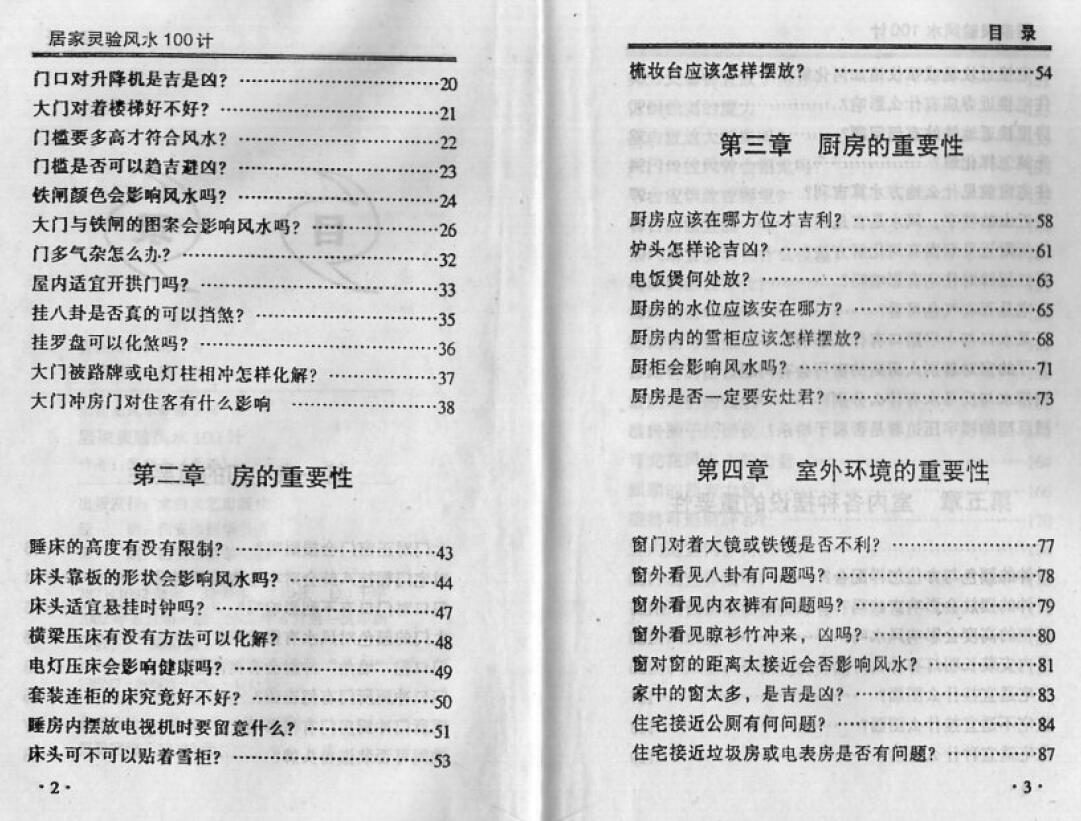 居家灵验风水100计
门口对升降机是吉是凶？……20
大门对着楼梯好不好？……21
门槛要多高才符合风水？……22
门槛是否可以趋吉避凶？……23
铁闸颜色会影响风水吗？……24
大门与铁闸的图案会影响风水吗？……26
门多气杂怎么办？……32
屋内适宜开拱门吗？……33
挂八卦是否真的可以挡煞？……35
挂罗盘可以化煞吗？……36
大门被路牌或电灯柱相冲怎样化解？……37
大门冲房门对住客有什么影响……38
第二章 房的重要性
睡床的高度有没有限制？……43
床头靠板的形状会影响风水吗？……44
床头适宜悬挂时钟吗？……47
横梁压床有没有方法可以化解？……48
电灯压床会影响健康吗？……49
套装连柜的床究竟好不好？……50
睡房内摆放电视机时要留意什么？……51
床头可不可以贴着雪柜？……53
·2·
目 录
梳妆台应该怎样摆放？……54
第三章 厨房的重要性
厨房应该在哪方位才吉利？……58
炉头怎样论吉凶？……61
电饭煲何处放？……63
厨房的水位应该安在哪方？……65
厨房内的雪柜应该怎样摆放？……68
厨柜会影响风水吗？……71
厨房是否一定要安灶君？……73
第四章 室外环境的重要性
窗门对着大镜或铁镬是否不利？……77
窗外看见八卦有问题吗？……78
窗外看见内衣裤有问题吗？……79
窗外看见晾衫竹冲来，凶吗？……80
窗对窗的距离太接近会否影响风水？……81
家中的窗太多，是吉是凶？……83
住宅接近公厕有何问题？……84
住宅接近垃圾房或电表房是否有问题？……87
·3·